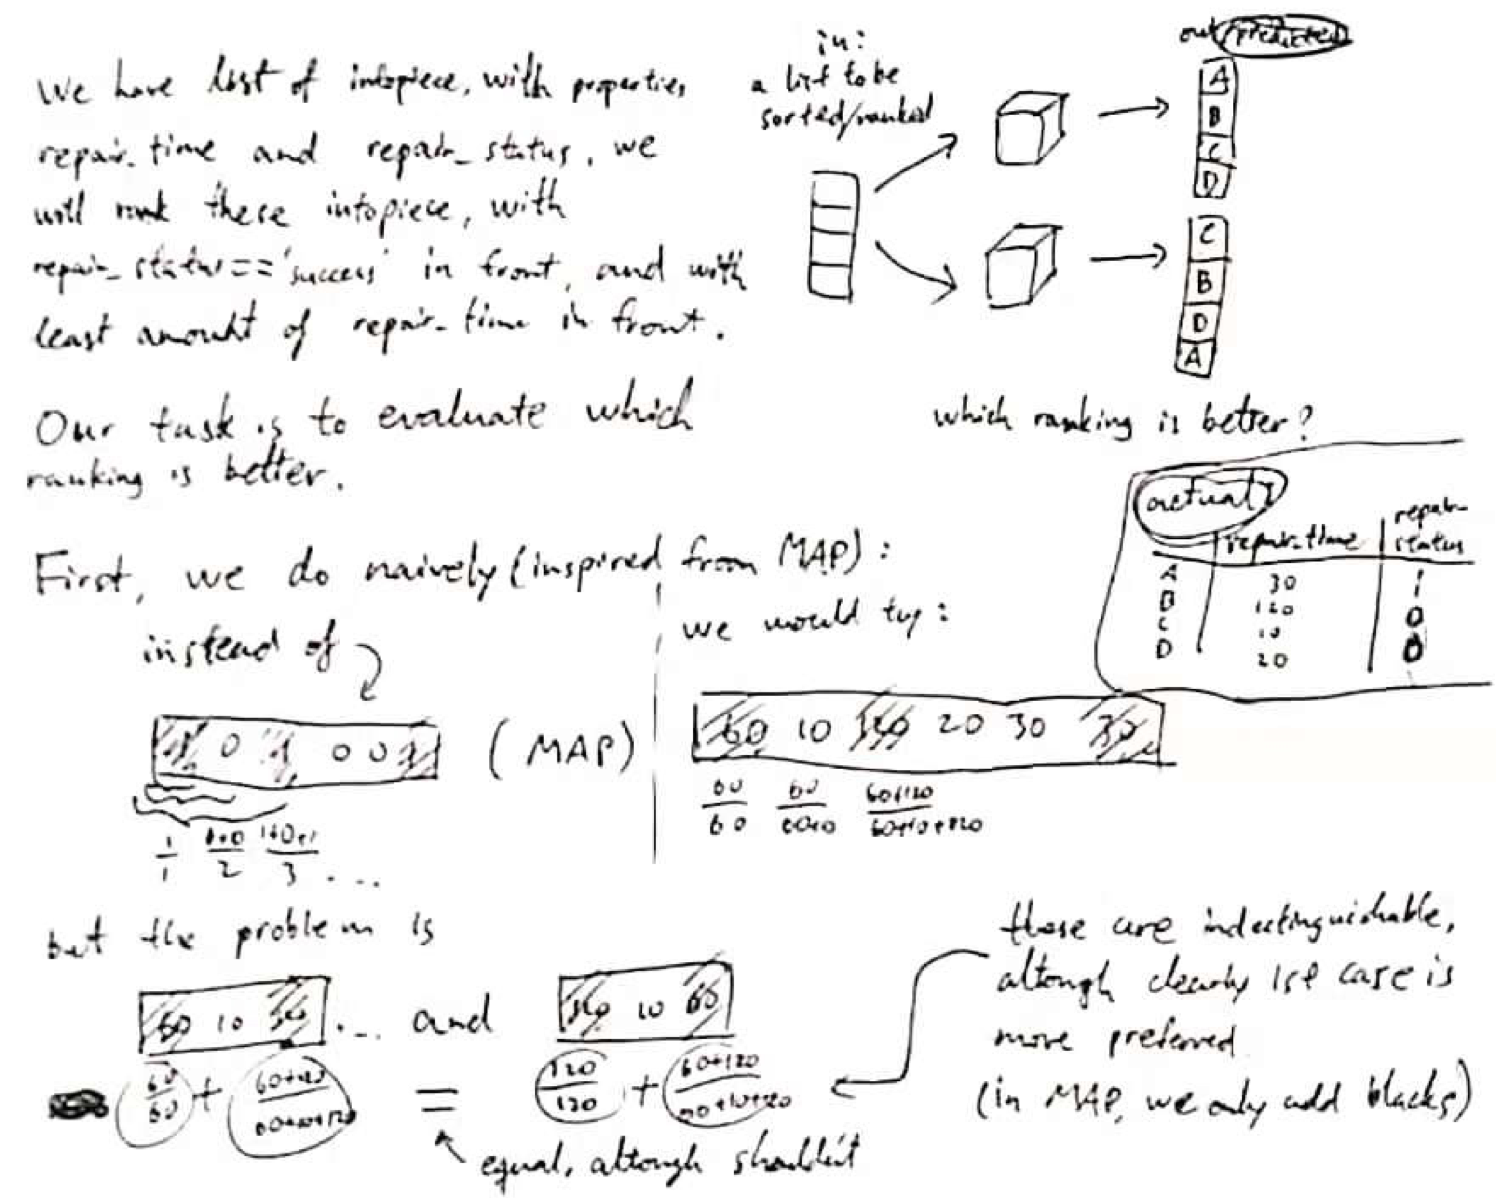 We have list of infopiece, with properties
repair_time and repair_status, we
will rank these infopiece, with
repair_status=='success' in front, and with
least amount of repair_time in front.
Our task is to evaluate which
ranking is better.
in:
a list to be
sorted/ranked
out/predicted
A
B
C
D
C
B
D
A
which ranking is better?
actual:
repair_time
repair_
status
A 30 1
B 120 0
C 10 0
D 20 0
First, we do naively (inspired from MAP):
instead of
1 0 1 0 0 1
(MAP)
1/1 1+0/2 1+0+1/3 ...
we would try:
60 10 120 20 30 30
60/60 60/60+10 60+120/60+10+120
but the problem is
60 10 120 ... and 120 10 60
60/60 + 60+120/60+10+120 = 120/120 + 60+120/120+10+120
equal, altough shouldn't
these are indistinguishable,
altough clearly 1st case is
more preferred
(in MAP, we only add blacks)